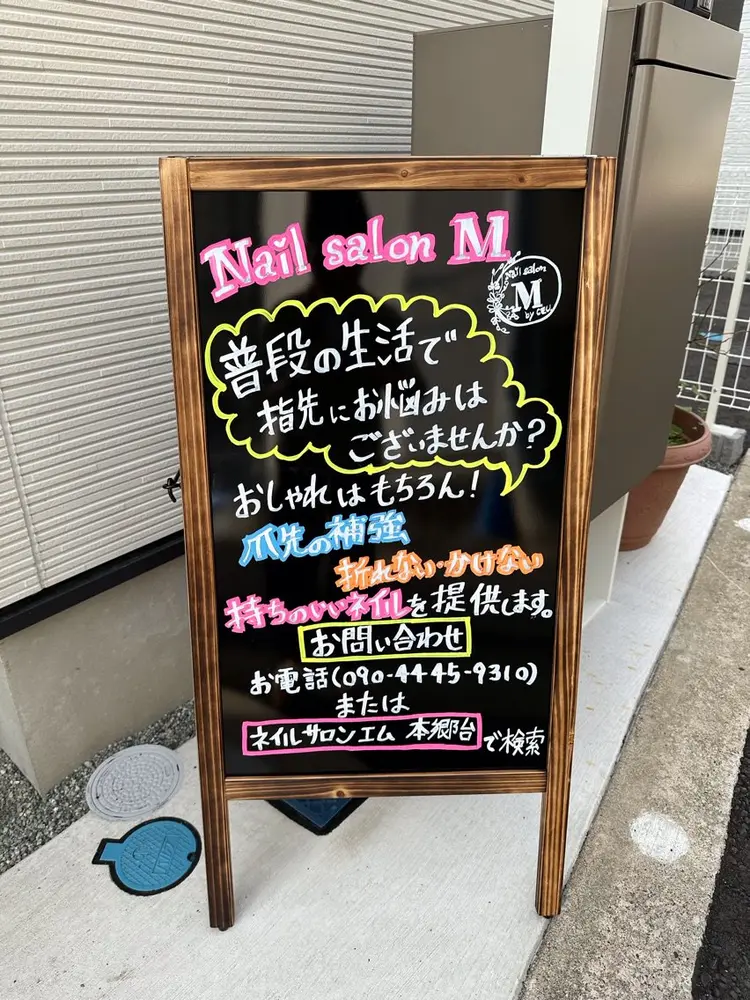 Nail salon M
Nail salon
M
普段の生活で
指先にお悩みは
ございませんか?
おしゃれはもちろん!
爪先の補強、
折れない・かけない
持ちのいいネイルを提供します。
お問い合わせ
お電話(090-4445-9310)
または
ネイルサロンエム 本郷台で検索